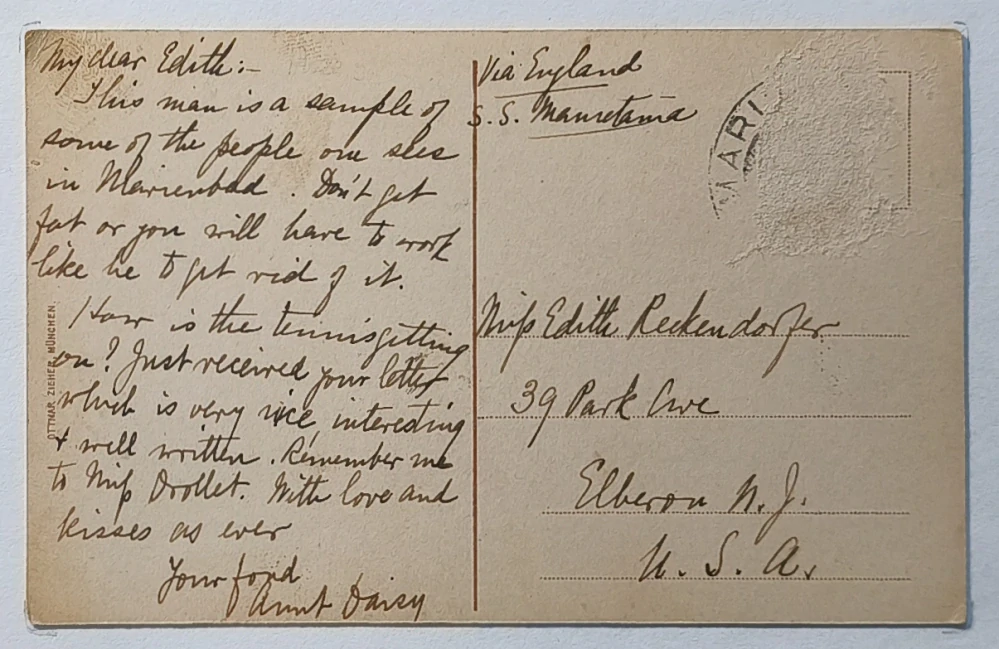 My dear Edith:-
This man is a sample of
some of the people one sees
in Marienbad. Don't get
fat or you will have to work
like he to get rid of it.
How is the tennis getting
on? Just received your letter
which is very nice interesting
& well written. Remember me
to Miss Drollet. With love and
kisses as ever
Your fond
Aunt Daisy
OTTMAR ZIEHER, MÜNCHEN.
Via England
S.S. Mauretania
MARI
Miss Edith Reckendorfer
39 Park Ave
Elberon N.J.
U.S.A.